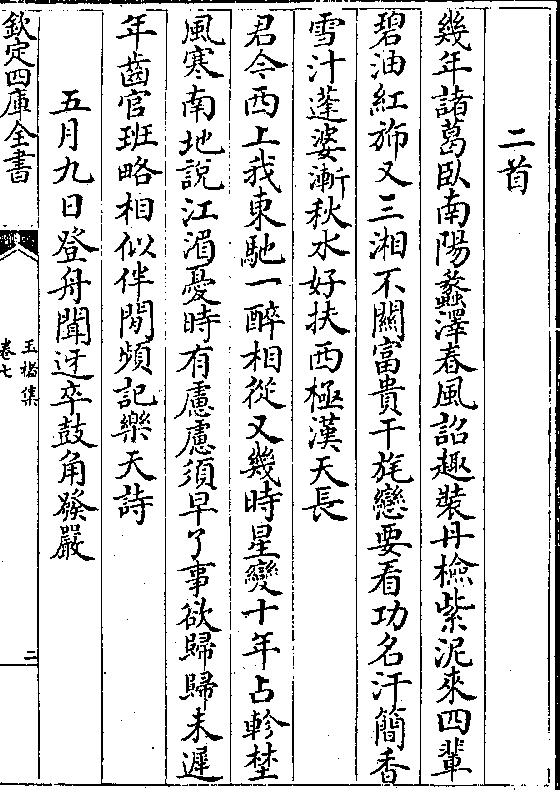 二首
幾年諸葛臥南陽蠡澤春風詔趣裝丹檢紫泥來四輩
碧油紅斾又三湘不關富貴干旄戀要看功名汗簡香
雪汁蓬婆漸秋水好扶西極漢天長
君今西上我東馳一醉相從又幾時星變十年占軫埜
風寒南地說江湄憂時有慮慮須早了事欲歸歸未遲
年齒官班略相似伴閒頻記樂天詩
五月九日登舟聞迓卒鼓角發嚴
欽定四庫全書
玉楮集
卷七
二